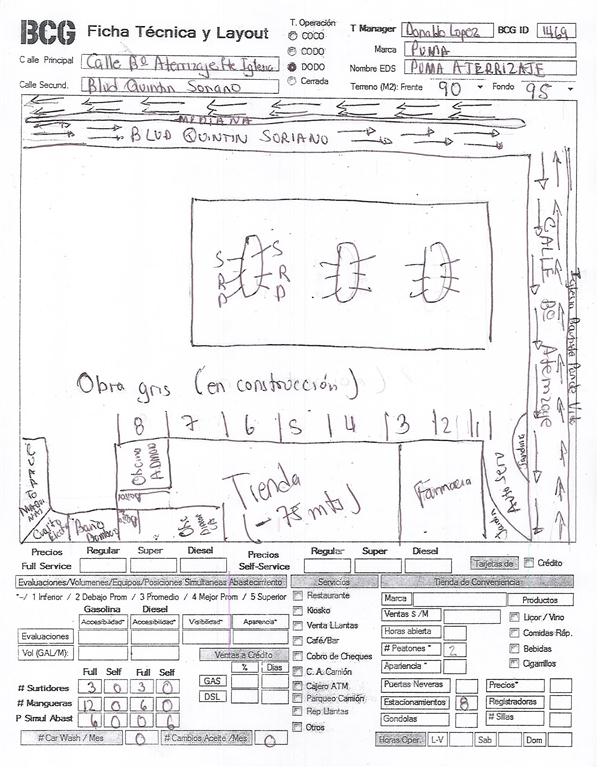 BCG Ficha Técnica y Layout
T. Operación
COCO
CODO
DODO
Cerrada
T Manager Donaldo Lopez BCG ID 1469
Marca PUMA
Nombre EDS PUMA ATERRIZAJE
Terreno (M2): Frente 90 Fondo 95
Calle Principal Calle Bº Aterrizaje, fte Iglesia
Calle Secund. Blvd Quintin Soriano
MEDIANA
BLVD QUINTIN SORIANO
CALLE Bº Aterrizaje
S S
R R
D D
Obra gris (en construcción)
8 7 6 5 4 3 2 1
Oficina ADMON
Tienda
(- 75 mts)
Farmacia
Jardin
Cuarto
Baño
Precios Regular Super Diesel Precios Regular Super Diesel
Full Service Self-Service Tarjetas de Crédito
Evaluaciones/Volumenes/Equipos/Posiciones Simultaneas Abastecimiento
*-/ 1 Inferor / 2 Debajo Prom / 3 Promedio / 4 Mejor Prom / 5 Superior
Gasolina Diesel
Accesibilidad* Accesibilidad* Visibilidad* Aparencia*
Evaluaciones
Vol (GAL/M):
Ventas a Crédito
% Dias
GAS
DSL
Full Self Full Self
# Surtidores 3 0 3 0
# Mangueras 12 0 6 0
P Simul Abast 6 0 0 6
# Car Wash / Mes 0 # Cambios Aceite /Mes 0
Servicios
Restaurante
Kiosko
Venta LLantas
Café/Bar
Cobro de Cheques
C. A. Camión
Cajero ATM
Parqueo Camión
Rep Llantas
Otros
Tienda de Conveniencia
Marca
Ventas $ /M
Horas abierta
# Peatones * 2
Apariencia *
Productos
Liçor / Vino
Comidas Ráp.
Bebidas
Cigarrillos
Puertas Neveras Precios*
Estacionamientos 8 Registradoras
Gondolas # Sillas
Horas Oper. L-V Sab Dom